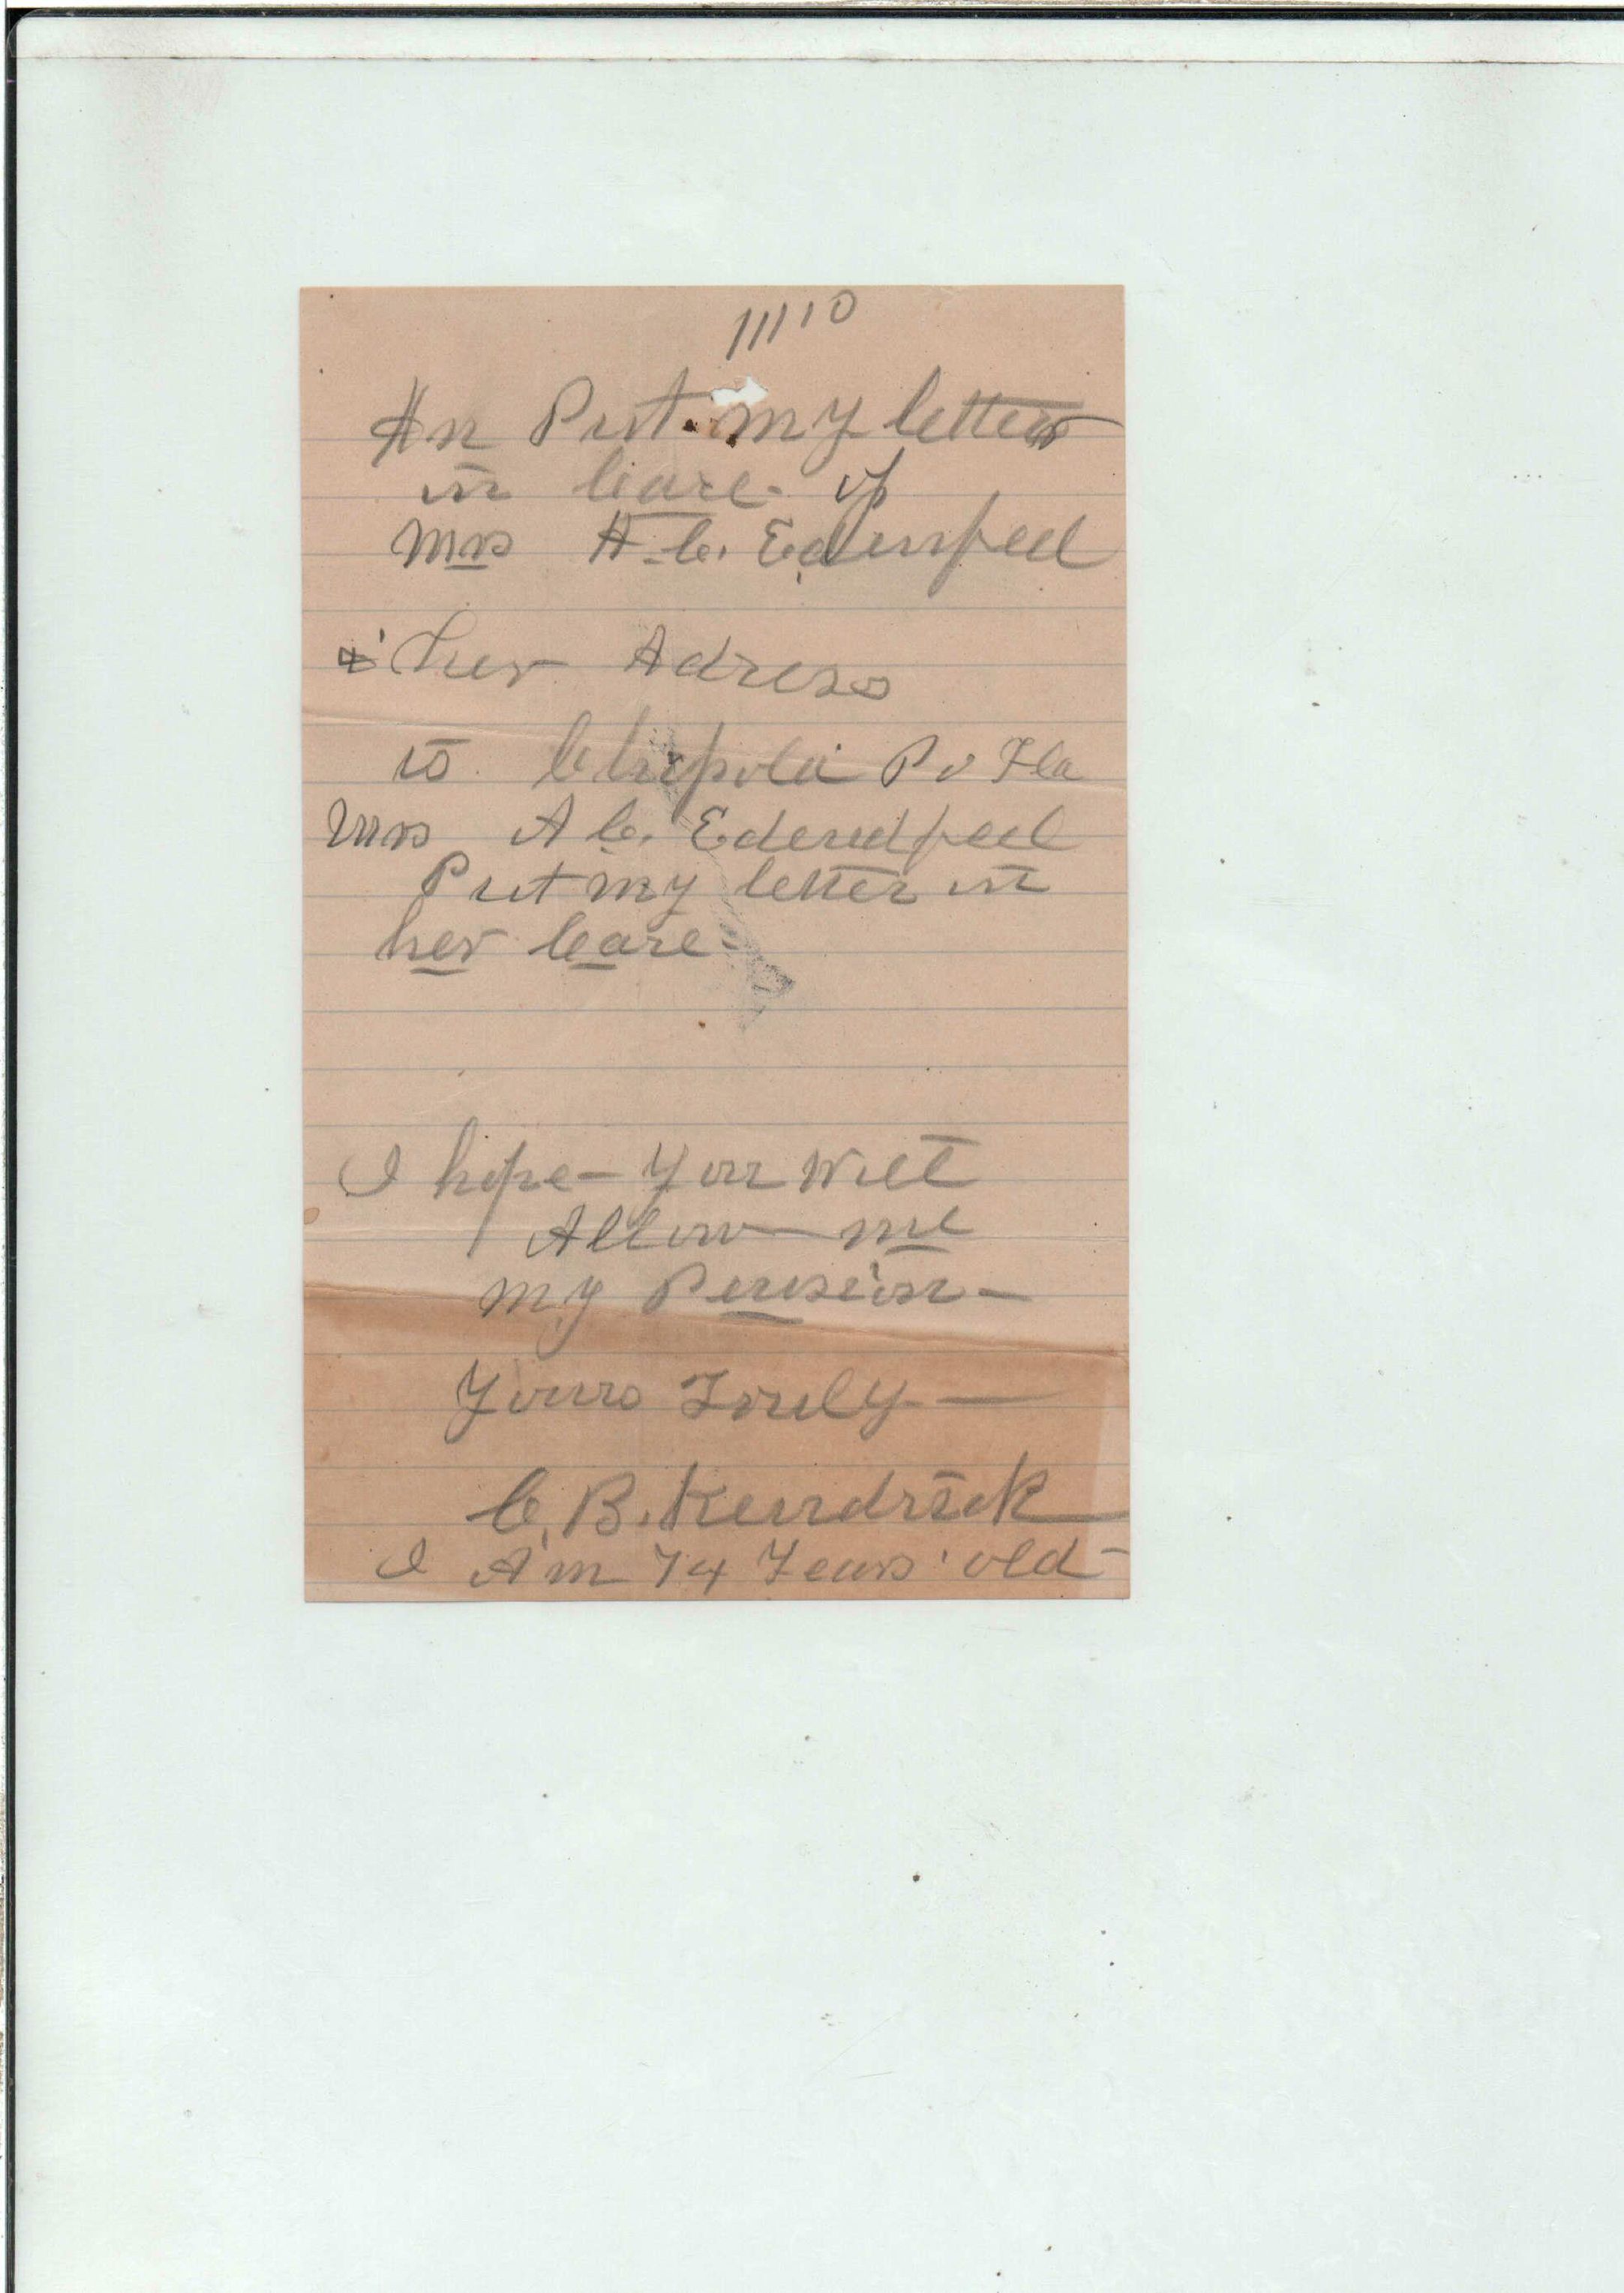 11110
An Put my letters
in Care of
Mrs A. C. Edenfeel
& her Adress
to Chipola Po Fla
Mrs A C. Ederudfeel
Put my letter in
her Care
I hope - You Will
Allow me
my Pension -
Yours Truly -
C. B. Kendrick
I Am 74 Years old -